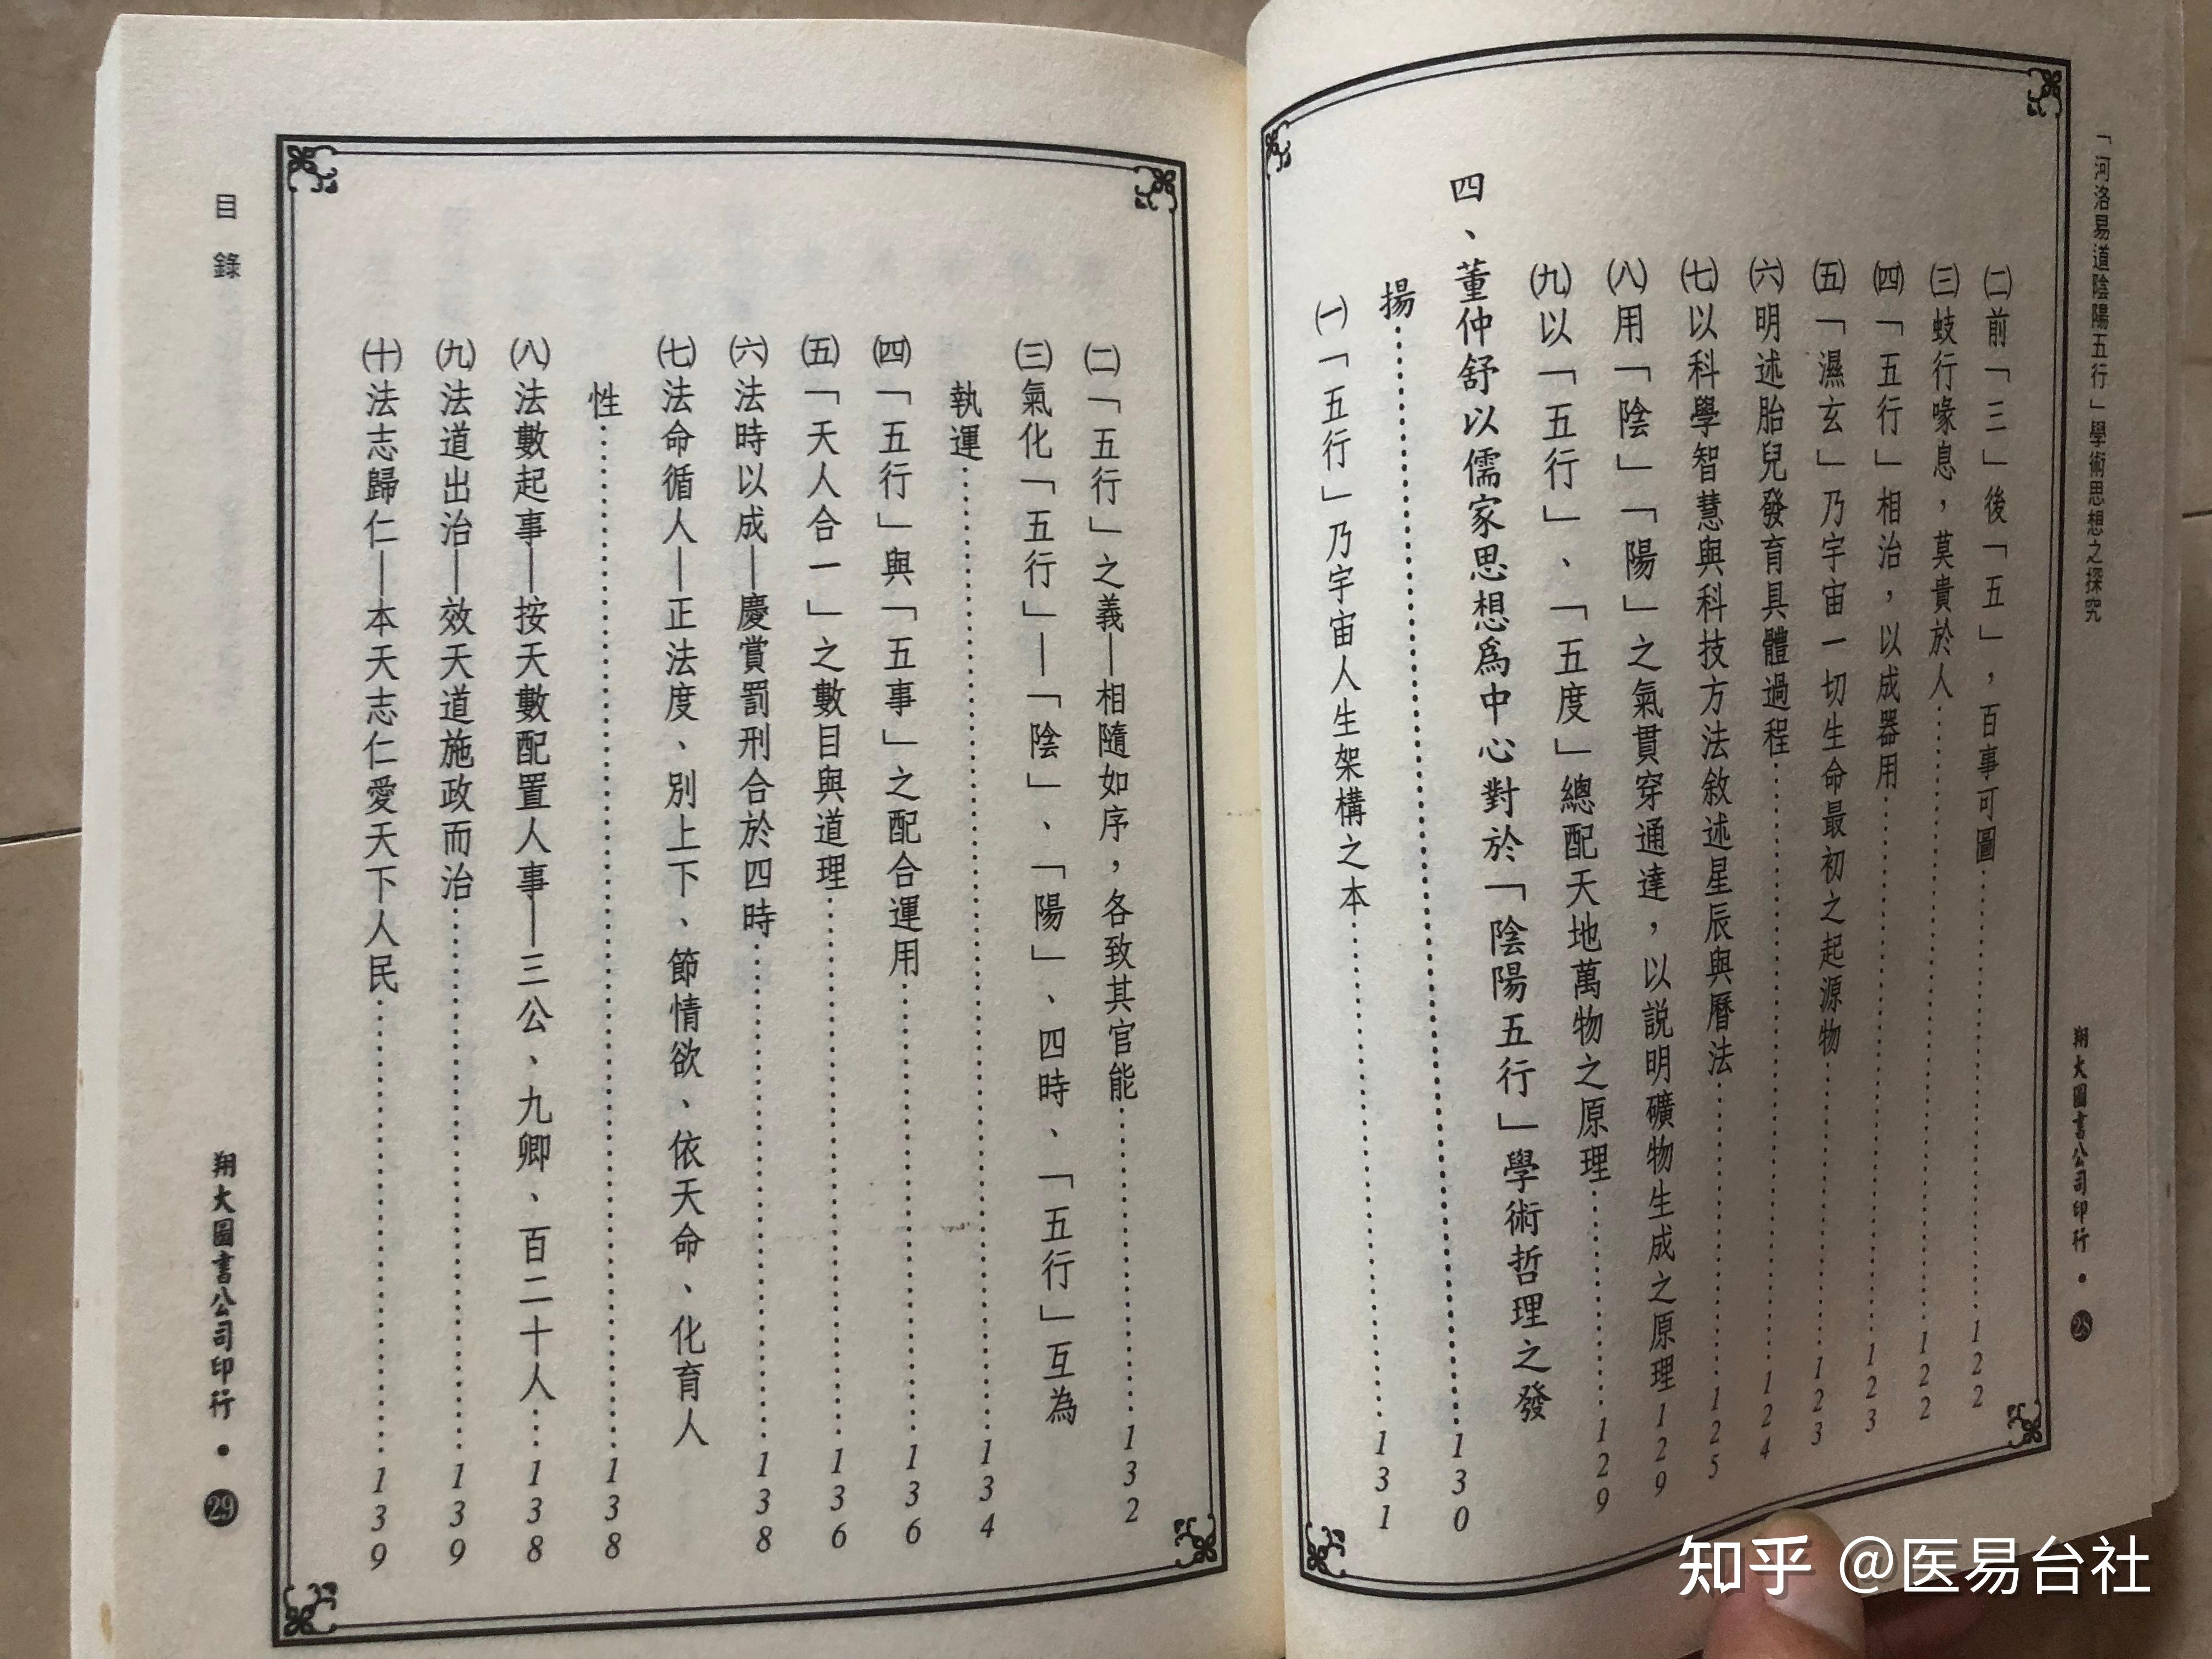 「河洛易道陰陽五行」學術思想之探究
翔大圖書公司印行・28
㈡前「三」後「五」，百事可圖……122
㈢蚑行喙息，莫貴於人……122
㈣「五行」相治，以成器用……123
㈤「濕玄」乃宇宙一切生命最初之起源物……123
㈥明述胎兒發育具體過程……124
㈦以科學智慧與科技方法敘述星辰與曆法……125
㈧用「陰」「陽」之氣貫穿通達，以説明礦物生成之原理129
㈨以「五行」、「五度」總配天地萬物之原理……129
四、董仲舒以儒家思想為中心對於「陰陽五行」學術哲理之發
揚……130
㈠「五行」乃宇宙人生架構之本……131
㈡「五行」之義—相隨如序，各致其官能……132
㈢氣化「五行」—「陰」、「陽」、四時、「五行」互為
執運……134
㈣「五行」與「五事」之配合運用……136
㈤「天人合一」之數目與道理……136
㈥法時以成—慶賞罰刑合於四時……138
㈦法命循人—正法度、別上下、節情欲、依天命、化育人
性……138
㈧法數起事—按天數配置人事—三公、九卿、百二十人…138
㈨法道出治—效天道施政而治……139
㈩法志歸仁—本天志仁愛天下人民……139
目錄
翔大圖書公司印行・29
知乎 @医易台社